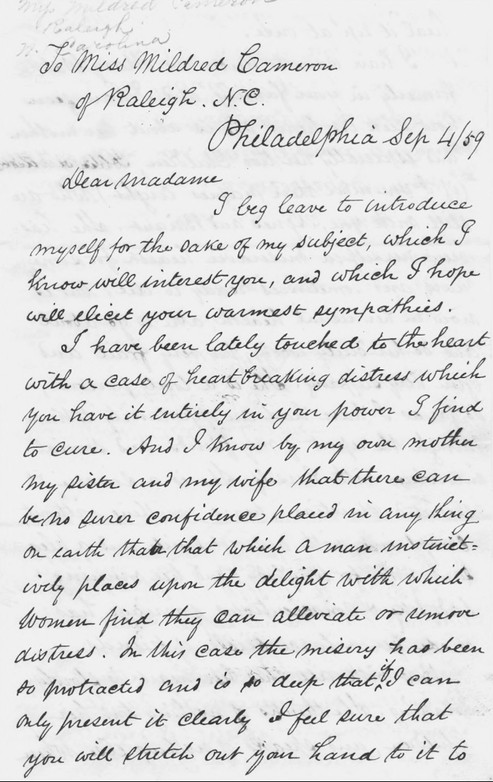 Miss Mildred Cameron
Raleigh
N. Carolina
To Miss Mildred Cameron
of Raleigh. N.C.
Philadelphia Sep 4/59
Dear Madame
I beg leave to introduce
myself for the sake of my subject, which I
know will interest you, and which I hope
will elicit your warmest sympathies.
I have been lately touched to the heart
with a case of heartbreaking distress which
you have it entirely in your power I find
to cure. And I know by my own mother
my sister and my wife that there can
be no surer confidence placed in any thing
on earth than that which a man instinct-
ively places upon the delight with which
women find they can alleviate or remove
distress. In this case the misery has been
so protracted and is so deep that if I can
only present it clearly I feel sure that
you will stretch out your hand to it to